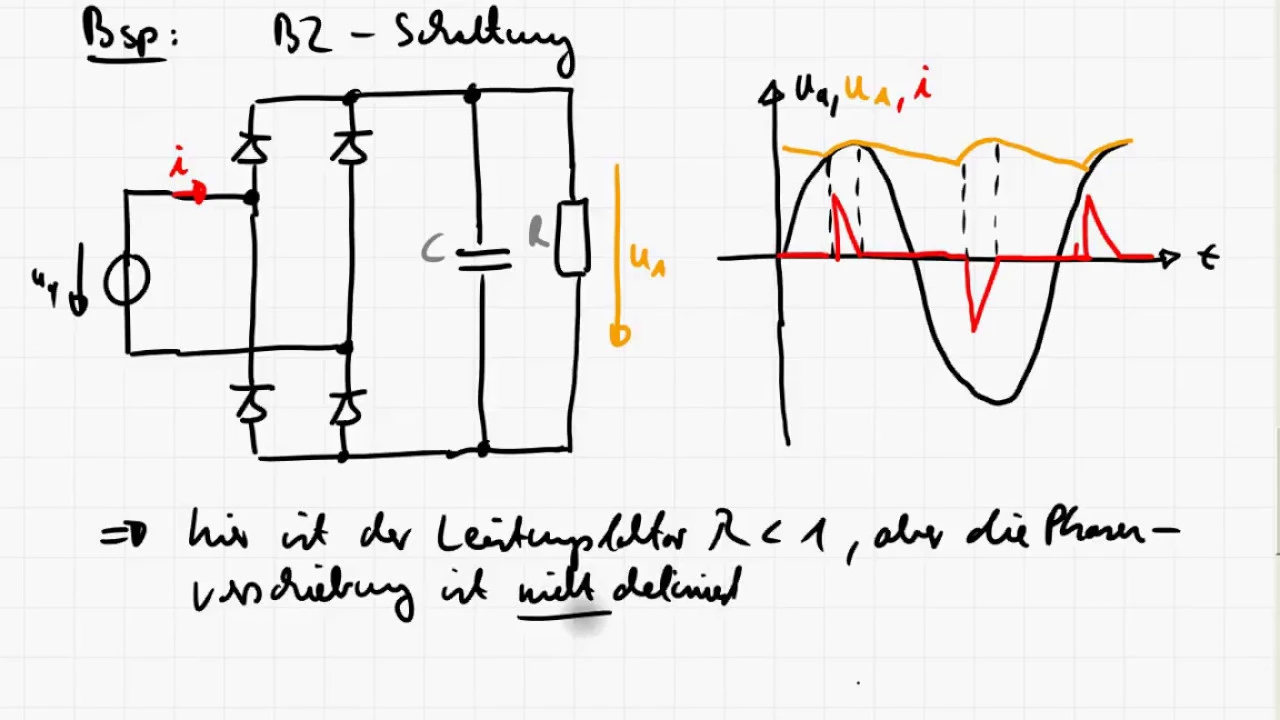 Bsp: B2 - Schaltung
u_q, u_A, i
i
C
R
u_A
u_q
t
⇒ hier ist der Leistungsfaktor λ < 1, aber die Phasen-
verschiebung ist nicht definiert